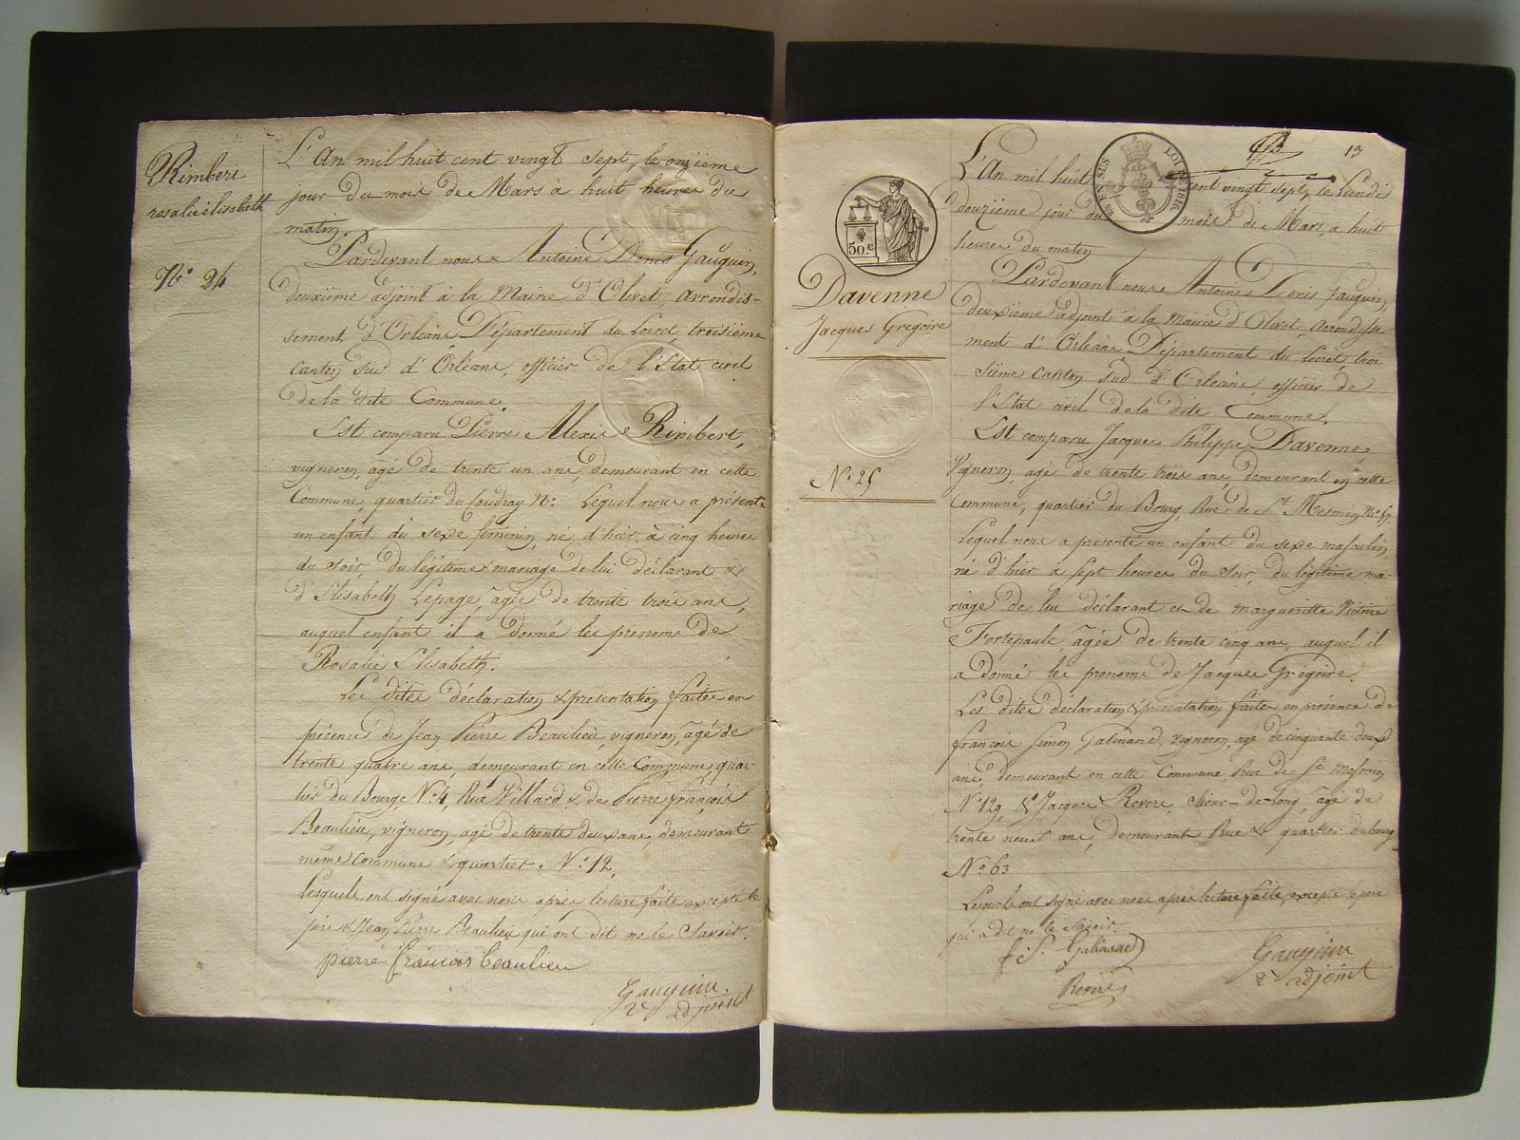 Rimbert
rosalie élisabeth
N° 24
L'An mil huit cent vingt sept, le onzième
jour du mois de Mars à huit heures du
matin,
Pardevant nous Antoine Denis Gauguin,
deuxième adjoint à la Mairie d'Olivet, arrondis-
sement d'Orléans Département du Loiret, troisième
canton sud d'Orléans, officier de l'Etat civil
de la dite Commune,
Est comparu Pierre Alexis Rimbert,
vigneron, agé de trente un ans, demeurant en cette
Commune, quartier du Coudray N°. Lequel nous a présenté
un enfant du sexe féminin, né d'hier à cinq heures
du soir, du légitime mariage de lui déclarant &
d'Elisabeth Lepage, agée de trente trois ans,
auquel enfant il a donné les prenoms de
Rosalie Elisabeth.
Les dites déclaration & présentation faites en
présence de Jean Pierre Beaulieu, vigneron, agé de
trente quatre ans, demeurant en cette Commune, quar-
tier du Bourg, N° 4, Rue Villard & de Pierre françois
Beaulieu, vigneron, agé de trente deux ans, demeurant
même Commune & quartier, N° 12,
lesquels ont signé avec nous après lecture faite excepté le
père & Jean Pierre Beaulieu qui ont dit ne le Savoir.
pierre françois beaulieu
Gauguin.
2e adjoint
13
50 c
EN SUS
LOI DE 1816
Davenne
Jacques Gregoire
N° 25
L'An mil huit cent vingt sept, le Lundi
douzième jour du mois de Mars, à huit
heures du matin
Pardevant nous Antoine Denis Gauguin,
deuxième adjoint à la Mairie d'Olivet, arrondisse-
ment d'Orléans, Département du Loiret, troi-
sième canton, sud d'Orléans, officier de
l'Etat civil de la dite Commune,
Est comparu Jacques Philippe Davenne
Vigneron, agé de trente trois ans, demeurant en cette
Commune, quartier du Bourg, Rue de St Mesmin, N°
Lequel nous a présenté un enfant du sexe masculin
né d'hier à sept heures du soir, du légitime ma-
riage de lui déclarant et de marguerite Victoire
Fortepaule, agée de trente cinq ans, auquel il
a donné les prenoms de Jacques Grégoire.
Les dites déclaration & présentation faites en présence de
françois Simon Galinand, vigneron, agé de cinquante deux
ans, demeurant en cette Commune Rue de St Mesmin
N° 129 & Jacques Revere, agé de
trente neuf ans, demeurant Rue & quartier du bourg
N° 63
Lesquels ont signé avec nous après lecture faite, excepté le père
qui a dit ne le Savoir.
f S. Galinand
Revere
Gauguin
2e adjoint